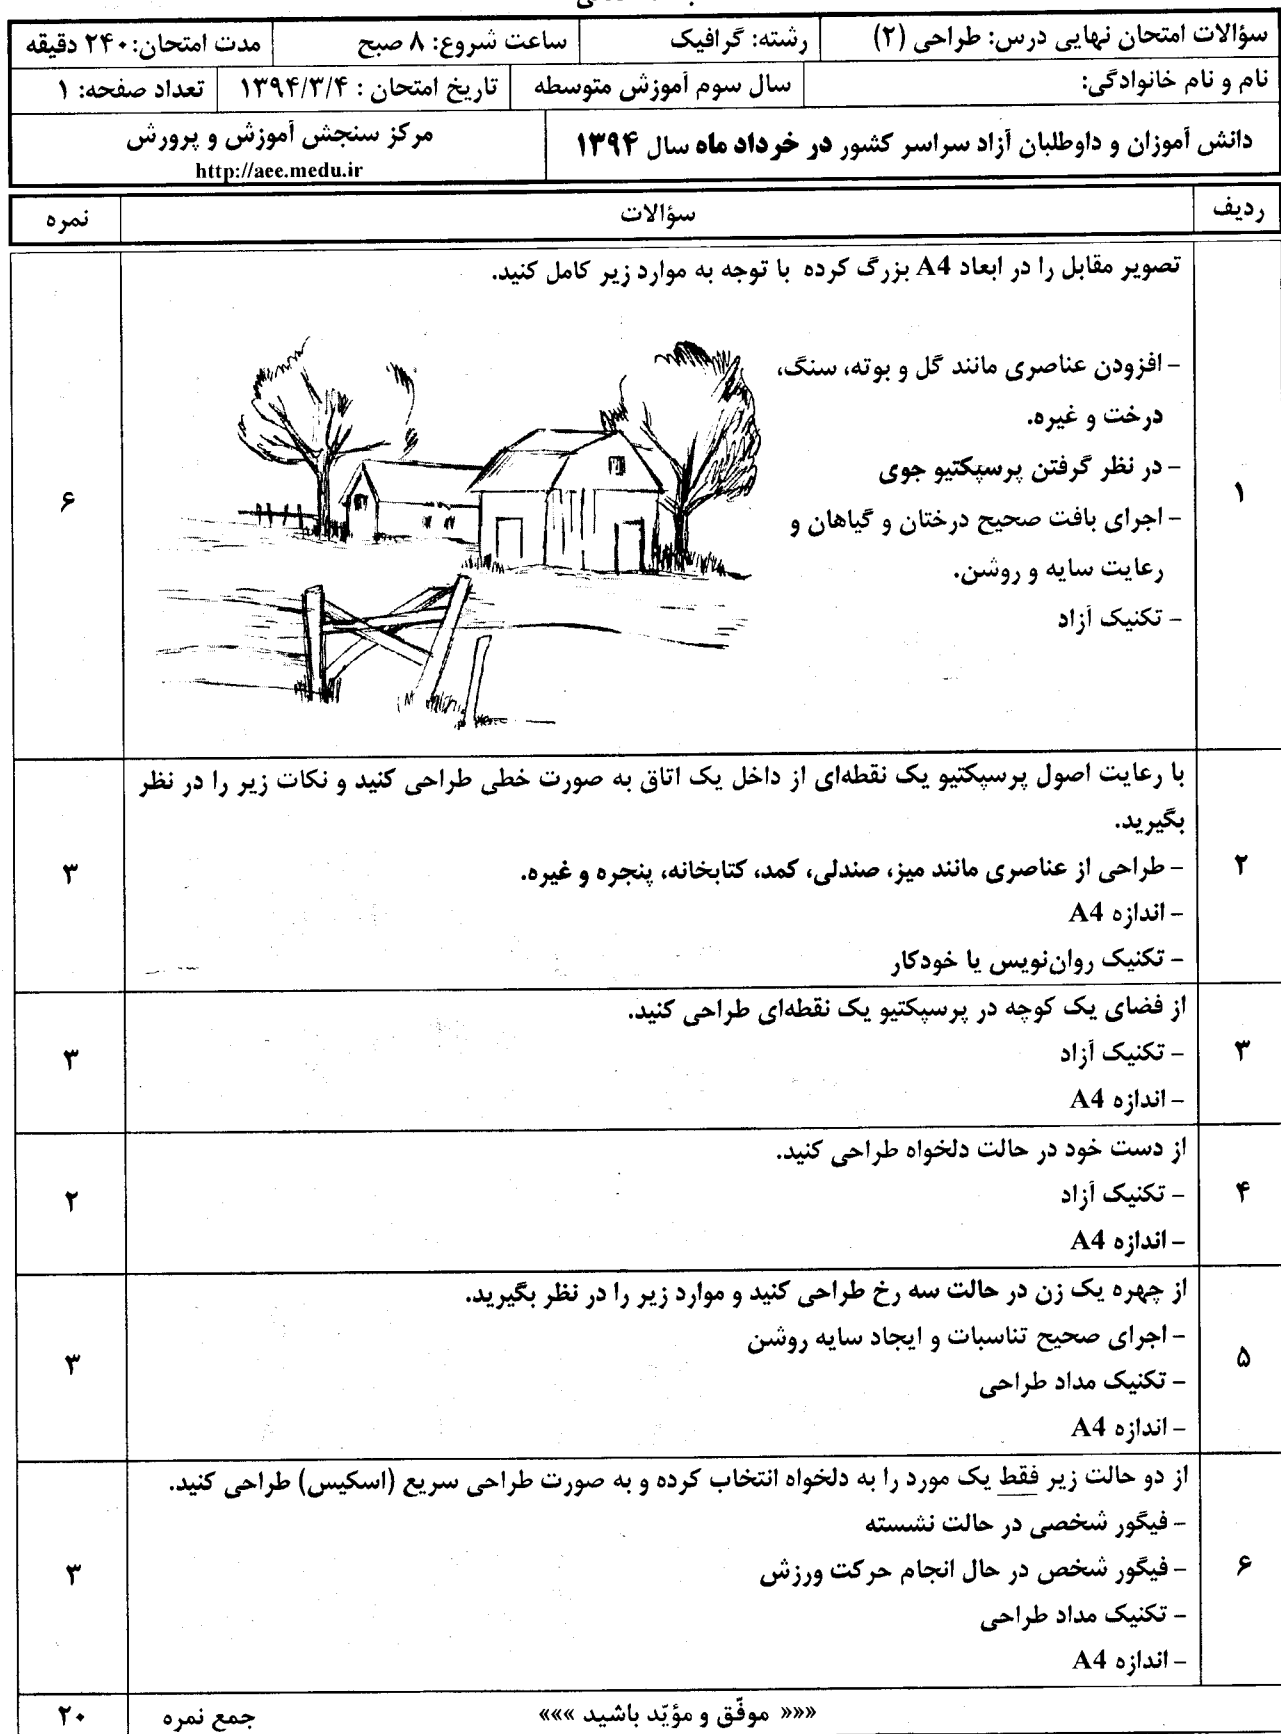 سؤالات امتحان نهایی درس: طراحی (۲) رشته: گرافیک ساعت شروع: ۸ صبح مدت امتحان: ۲۴۰ دقیقه
نام و نام خانوادگی: سال سوم آموزش متوسطه تاریخ امتحان : ۱۳۹۴/۳/۴ تعداد صفحه: ۱
دانش آموزان و داوطلبان آزاد سراسر کشور در خرداد ماه سال ۱۳۹۴ مرکز سنجش آموزش و پرورش
http://aee.medu.ir
ردیف سؤالات نمره
تصویر مقابل را در ابعاد A4 بزرگ کرده با توجه به موارد زیر کامل کنید.
- افزودن عناصری مانند گل و بوته، سنگ،
درخت و غیره.
- در نظر گرفتن پرسپکتیو جوی
۱ ۶
- اجرای بافت صحیح درختان و گیاهان و
رعایت سایه و روشن.
- تکنیک آزاد
با رعایت اصول پرسپکتیو یک نقطه‌ای از داخل یک اتاق به صورت خطی طراحی کنید و نکات زیر را در نظر
بگیرید.
۲ - طراحی از عناصری مانند میز، صندلی، کمد، کتابخانه، پنجره و غیره. ۳
- اندازه A4
- تکنیک روان‌نویس یا خودکار
از فضای یک کوچه در پرسپکتیو یک نقطه‌ای طراحی کنید.
۳ - تکنیک آزاد ۳
- اندازه A4
از دست خود در حالت دلخواه طراحی کنید.
۴ - تکنیک آزاد ۲
- اندازه A4
از چهره یک زن در حالت سه رخ طراحی کنید و موارد زیر را در نظر بگیرید.
- اجرای صحیح تناسبات و ایجاد سایه روشن
۵ ۳
- تکنیک مداد طراحی
- اندازه A4
از دو حالت زیر فقط یک مورد را به دلخواه انتخاب کرده و به صورت طراحی سریع (اسکیس) طراحی کنید.
- فیگور شخصی در حالت نشسته
۶ - فیگور شخص در حال انجام حرکت ورزش ۳
- تکنیک مداد طراحی
- اندازه A4
««« موفّق و مؤیّد باشید »»» جمع نمره ۲۰